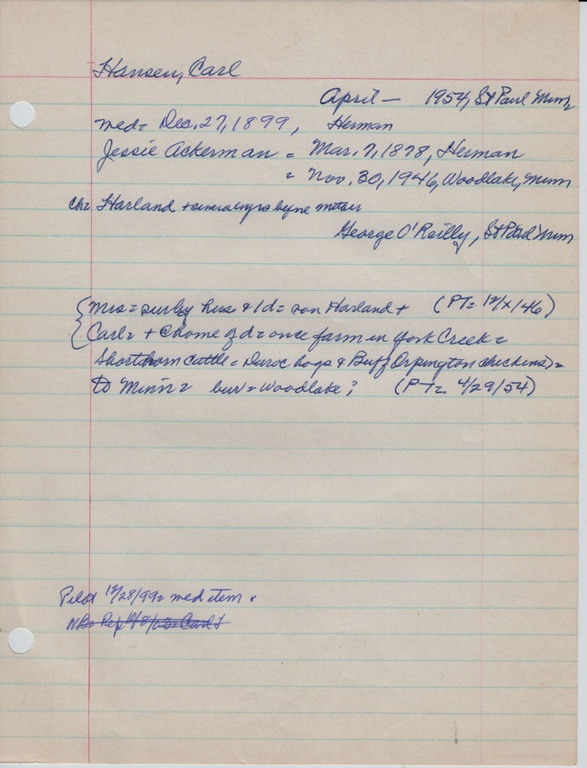 Hansen, Carl
April — 1954, St Paul Minn
med= Dec. 27, 1899, Herman
Jessie Ackerman = Mar. 7, 1878, Herman
= Nov. 30, 1946, Woodlake, Minn
ch= Harland + several yrs before mother
George O'Reilly, St Paul Minn
Mrs = surby hus & 1d = son Harland + (PT= 12/x/46)
Carl = + @ home of d = once farm in York Creek =
Shorthorn cattle = Duroc hogs & Buff Orpington chickens) =
to Minn = bur = Woodlake; (PT= 4/29/54)
Pilot 12/28/99 = med item
NB= Rep Carl +